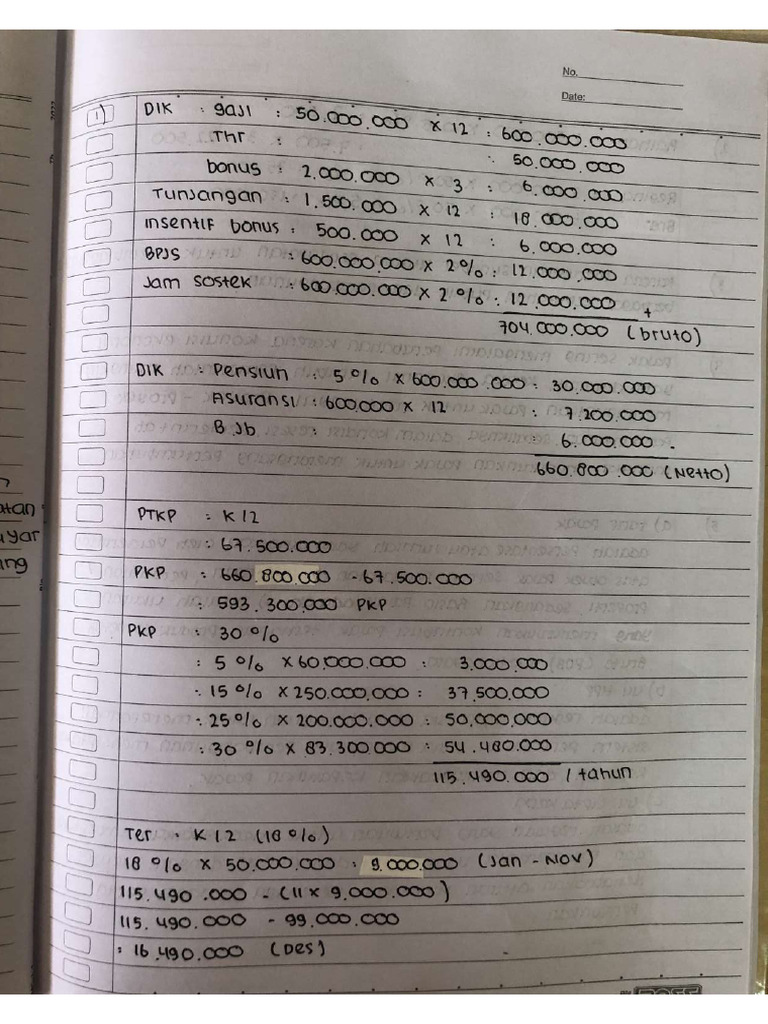 No.
Date:
1) DIK : gaji : 50.000.000 x 12 : 600.000.000
Thr : : 50.000.000
bonus : 2.000.000 x 3 : 6.000.000
Tunjangan : 1.500.000 x 12 : 18.000.000
Insentif bonus : 500.000 x 12 : 6.000.000
BPJS : 600.000.000 x 2% : 12.000.000
Jam sostek : 600.000.000 x 2% : 12.000.000 +
704.000.000 (bruto)
DIK : Pensiun : 5% x 600.000.000 : 30.000.000
Asuransi : 600.000 x 12 : 7.200.000
B Jb : 6.000.000 -
660.800.000 (Netto)
PTKP : K/2
: 67.500.000
PKP : 660.800.000 - 67.500.000
: 593.300.000 PKP
PKP : 30%
: 5% x 60.000.000 : 3.000.000
: 15% x 250.000.000 : 37.500.000
: 25% x 200.000.000 : 50.000.000
: 30% x 83.300.000 : 54.480.000
115.490.000 / tahun
Ter : K/2 (18%)
18% x 50.000.000 : 9.000.000 (Jan - Nov)
115.490.000 - (11 x 9.000.000)
115.490.000 - 99.000.000
: 16.490.000 (Des)